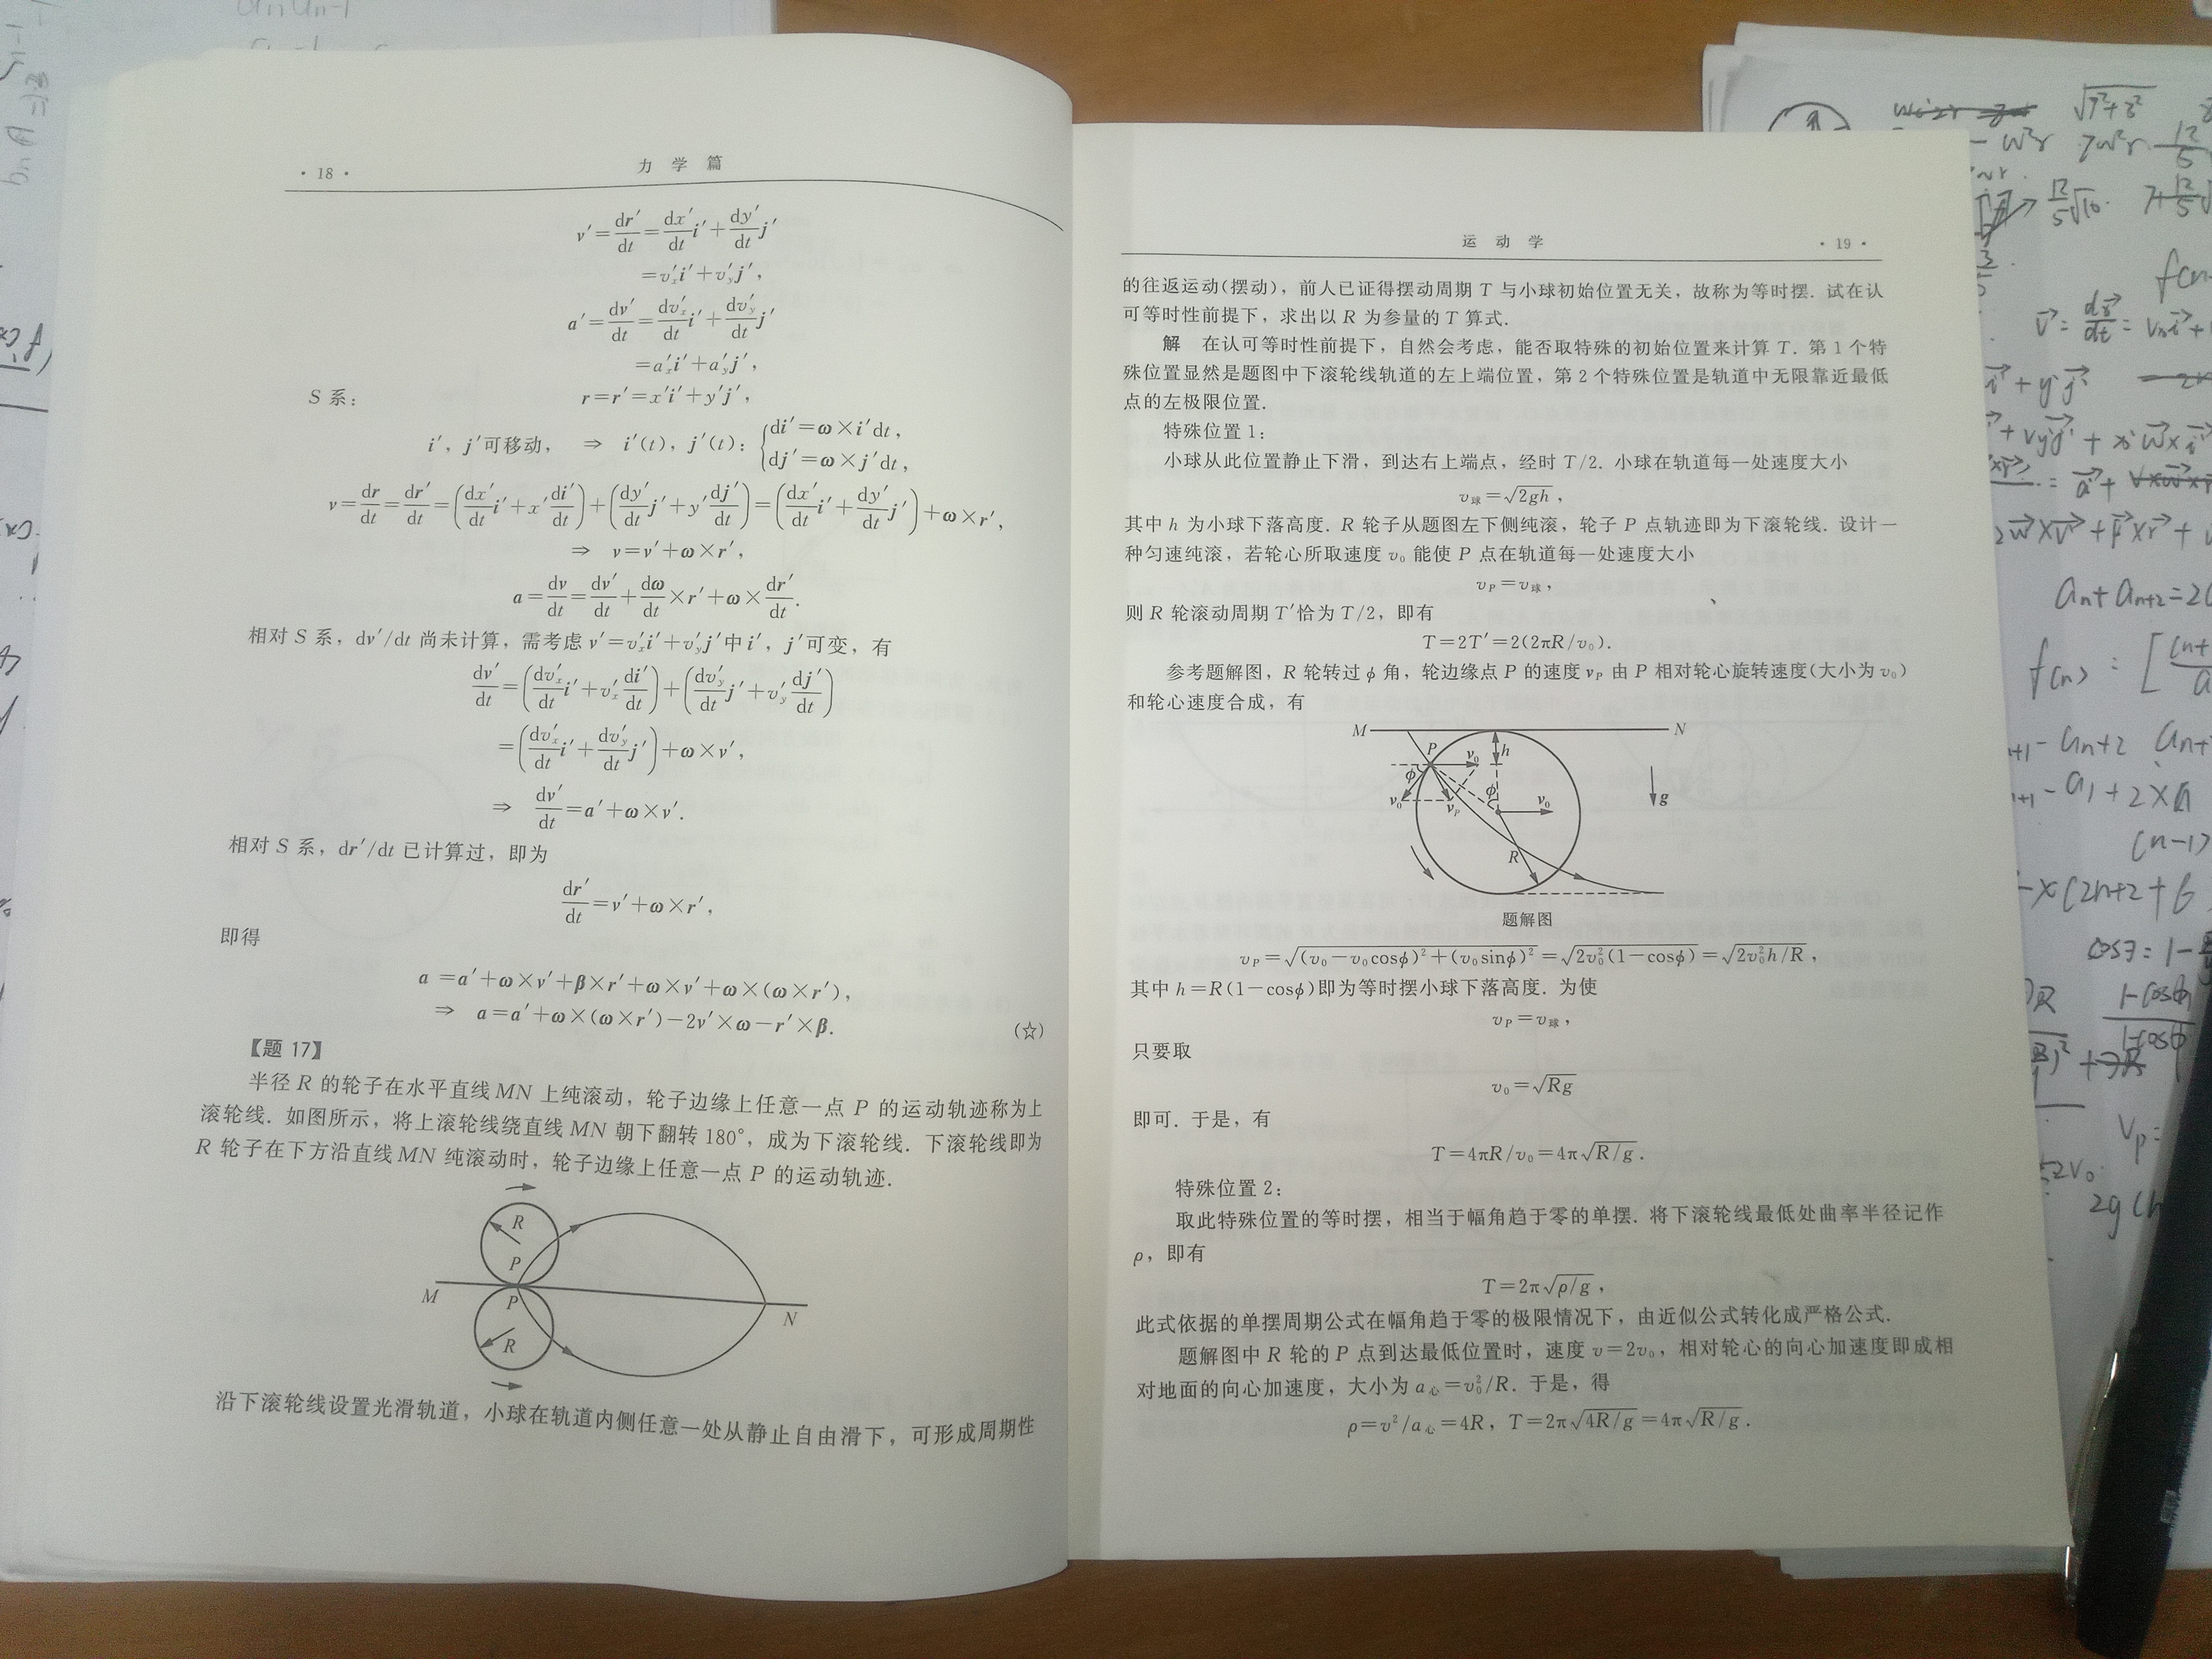 · 18 ·
力 学 篇
v′=dr′/dt=dx′/dt i′+dy′/dt j′
=v′ₓi′+v′ᵧj′,
a′=dv′/dt=dv′ₓ/dt i′+dv′ᵧ/dt j′
=a′ₓi′+a′ᵧj′,
S 系: r=r′=x′i′+y′j′,
i′, j′可移动, ⇒ i′(t), j′(t): {di′=ω×i′dt,
dj′=ω×j′dt,
v=dr/dt=dr′/dt=(dx′/dt i′+x′ di′/dt)+(dy′/dt j′+y′ dj′/dt)=(dx′/dt i′+dy′/dt j′)+ω×r′,
⇒ v=v′+ω×r′,
a=dv/dt=dv′/dt+dω/dt×r′+ω×dr′/dt.
相对 S 系, dv′/dt 尚未计算, 需考虑 v′=v′ₓi′+v′ᵧj′中 i′, j′可变, 有
dv′/dt=(dv′ₓ/dt i′+v′ₓ di′/dt)+(dv′ᵧ/dt j′+v′ᵧ dj′/dt)
=(dv′ₓ/dt i′+dv′ᵧ/dt j′)+ω×v′,
⇒ dv′/dt=a′+ω×v′.
相对 S 系, dr′/dt 已计算过, 即为
dr′/dt=v′+ω×r′,
即得
a=a′+ω×v′+β×r′+ω×v′+ω×(ω×r′),
⇒ a=a′+ω×(ω×r′)-2v′×ω-r′×β. (☆)
【题 17】
半径 R 的轮子在水平直线 MN 上纯滚动, 轮子边缘上任意一点 P 的运动轨迹称为上
滚轮线. 如图所示, 将上滚轮线绕直线 MN 朝下翻转 180°, 成为下滚轮线. 下滚轮线即为
R 轮子在下方沿直线 MN 纯滚动时, 轮子边缘上任意一点 P 的运动轨迹.
R
P
M
P
N
R
沿下滚轮线设置光滑轨道, 小球在轨道内侧任意一处从静止自由滑下, 可形成周期性
运 动 学
· 19 ·
的往返运动(摆动), 前人已证得摆动周期 T 与小球初始位置无关, 故称为等时摆. 试在认
可等时性前提下, 求出以 R 为参量的 T 算式.
解 在认可等时性前提下, 自然会考虑, 能否取特殊的初始位置来计算 T. 第 1 个特
殊位置显然是题图中下滚轮线轨道的左上端位置, 第 2 个特殊位置是轨道中无限靠近最低
点的左极限位置.
特殊位置 1:
小球从此位置静止下滑, 到达右上端点, 经时 T/2. 小球在轨道每一处速度大小
v球=√(2gh),
其中 h 为小球下落高度. R 轮子从题图左下侧纯滚, 轮子 P 点轨迹即为下滚轮线. 设计一
种匀速纯滚, 若轮心所取速度 v₀ 能使 P 点在轨道每一处速度大小
v_P=v球,
则 R 轮滚动周期 T′恰为 T/2, 即有
T=2T′=2(2πR/v₀).
参考题解图, R 轮转过 φ 角, 轮边缘点 P 的速度 v_P 由 P 相对轮心旋转速度(大小为 v₀)
和轮心速度合成, 有
M
N
P
v₀
h
φ
φ
v₀
v_P
v₀
g
R
题解图
v_P=√((v₀-v₀cosφ)²+(v₀sinφ)²)=√(2v₀²(1-cosφ))=√(2v₀²h/R),
其中 h=R(1-cosφ)即为等时摆小球下落高度. 为使
v_P=v球,
只要取
v₀=√(Rg)
即可. 于是, 有
T=4πR/v₀=4π√(R/g).
特殊位置 2:
取此特殊位置的等时摆, 相当于幅角趋于零的单摆. 将下滚轮线最低处曲率半径记作
ρ, 即有
T=2π√(ρ/g),
此式依据的单摆周期公式在幅角趋于零的极限情况下, 由近似公式转化成严格公式.
题解图中 R 轮的 P 点到达最低位置时, 速度 v=2v₀, 相对轮心的向心加速度即成相
对地面的向心加速度, 大小为 a心=v₀²/R. 于是, 得
ρ=v²/a心=4R, T=2π√(4R/g)=4π√(R/g).